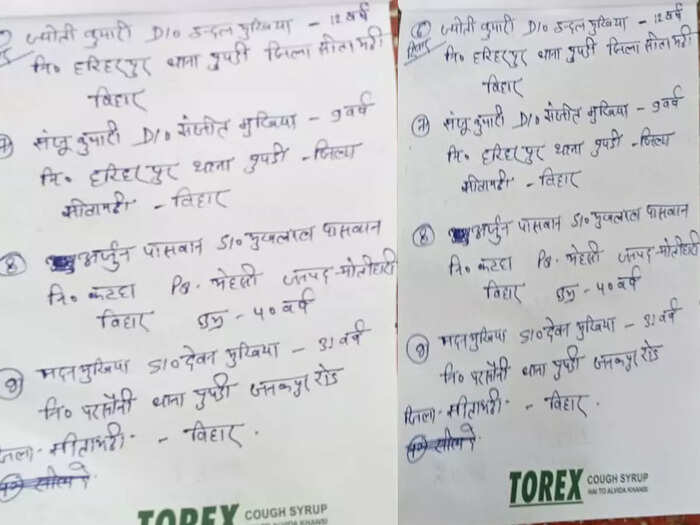 ज्योती कुमारी D/o मुखिया - 12 वर्ष
नि० हरिहरपुर थाना पुपरी जिला सीतामढी
बिहार
संजू कुमारी D/o संजीत मुखिया - 9 वर्ष
नि० हरिहरपुर थाना पुपरी - जिला
सीतामढी - बिहार
8 अर्जुन पासवान S/o पासवान
नि० कटहा Ps. मेहसी जनपद-मोतीहारी
बिहार उम्र - 40 वर्ष
9 मदन मुखिया S/o देवन मुखिया - 31 वर्ष
नि० परसौनी थाना पुपरी जनकपुर रोड
जिला- सीतामढी - बिहार.
TOREX COUGH SYRUP
6 ज्योती कुमारी D/o मुखिया - 12 वर्ष
नि० हरिहरपुर थाना पुपरी जिला सीतामढी
बिहार
7 संजू कुमारी D/o संजीत मुखिया - 9 वर्ष
नि० हरिहरपुर थाना पुपरी - जिला
सीतामढी - बिहार
8 अर्जुन पासवान S/o पासवान
नि० कटहा Ps. मेहसी जनपद-मोतीहारी
बिहार उम्र - 40 वर्ष
9 मदन मुखिया S/o देवन मुखिया - 31 वर्ष
नि० परसौनी थाना पुपरी जनकपुर रोड
जिला- सीतामढी - बिहार.
TOREX COUGH SYRUP
HAI TO ALVIDA KHANSI